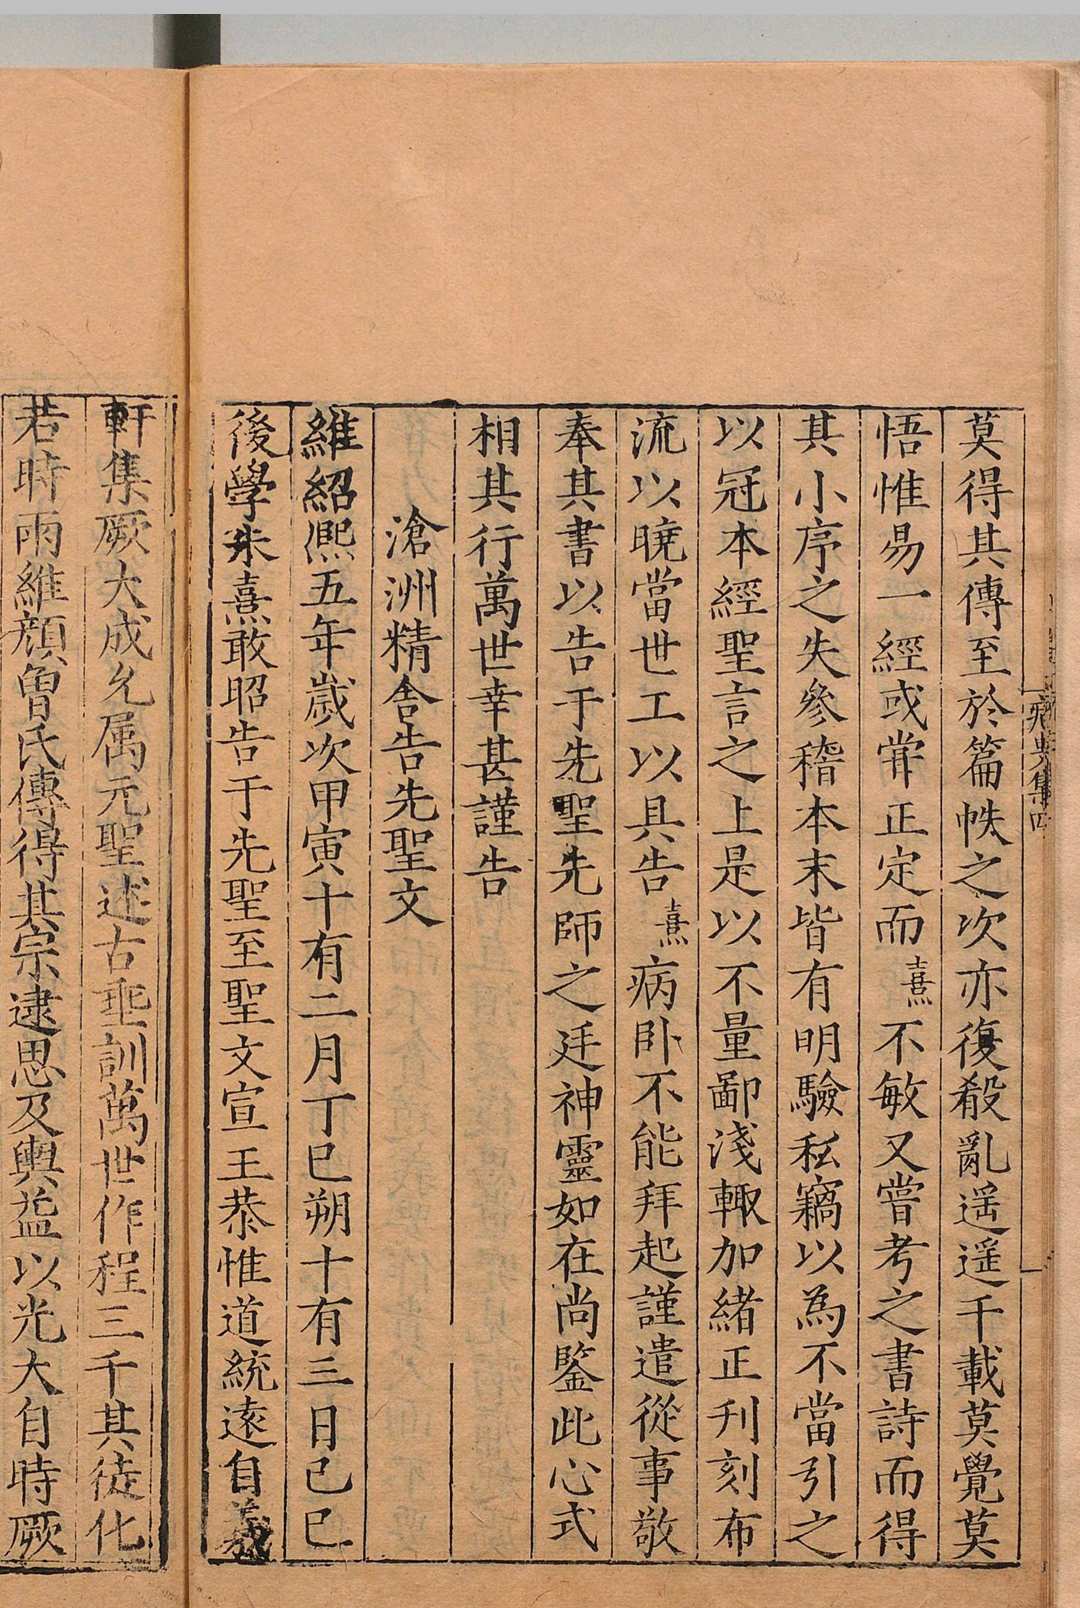 莫得其傳至於篇帙之次亦復殽亂遥遥千載莫覺莫
悟惟易一經或甞正定而熹不敏又嘗考之書詩而得
其小序之失參稽本末皆有明驗私竊以為不當引之
以冠本經聖言之上是以不量鄙淺輙加緒正刋刻布
流以曉當世工以具告熹病卧不能拜起謹遣從事敬
奉其書以告于先聖先師之廷神靈如在尚鑒此心式
相其行萬世幸甚謹告
滄洲精舍告先聖文
維紹熈五年歲次甲寅十有二月丁巳朔十有三日己巳
後學朱熹敢昭告于先聖至聖文宣王恭惟道統逺自羲
軒集厥大成允属元聖述古垂訓萬世作程三千其徒化
若時雨維顔曽氏傳得其宗逮思及輿益以光大自時厥